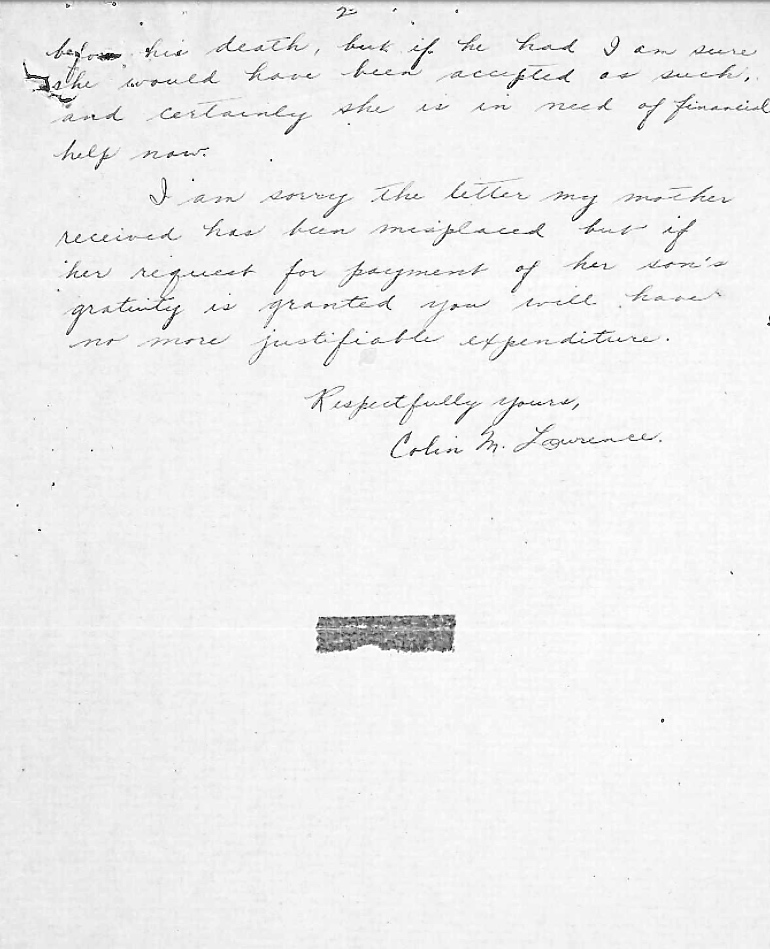 2
before his death, but if he had I am sure
she would have been accepted as such,
and certainly she is in need of financial
help now.
I am sorry the letter my mother
received has been misplaced but if
her request for payment of her son's
gratuity is granted you will have
no more justifiable expenditure.
Respectfully yours,
Colin M. Lawrence.